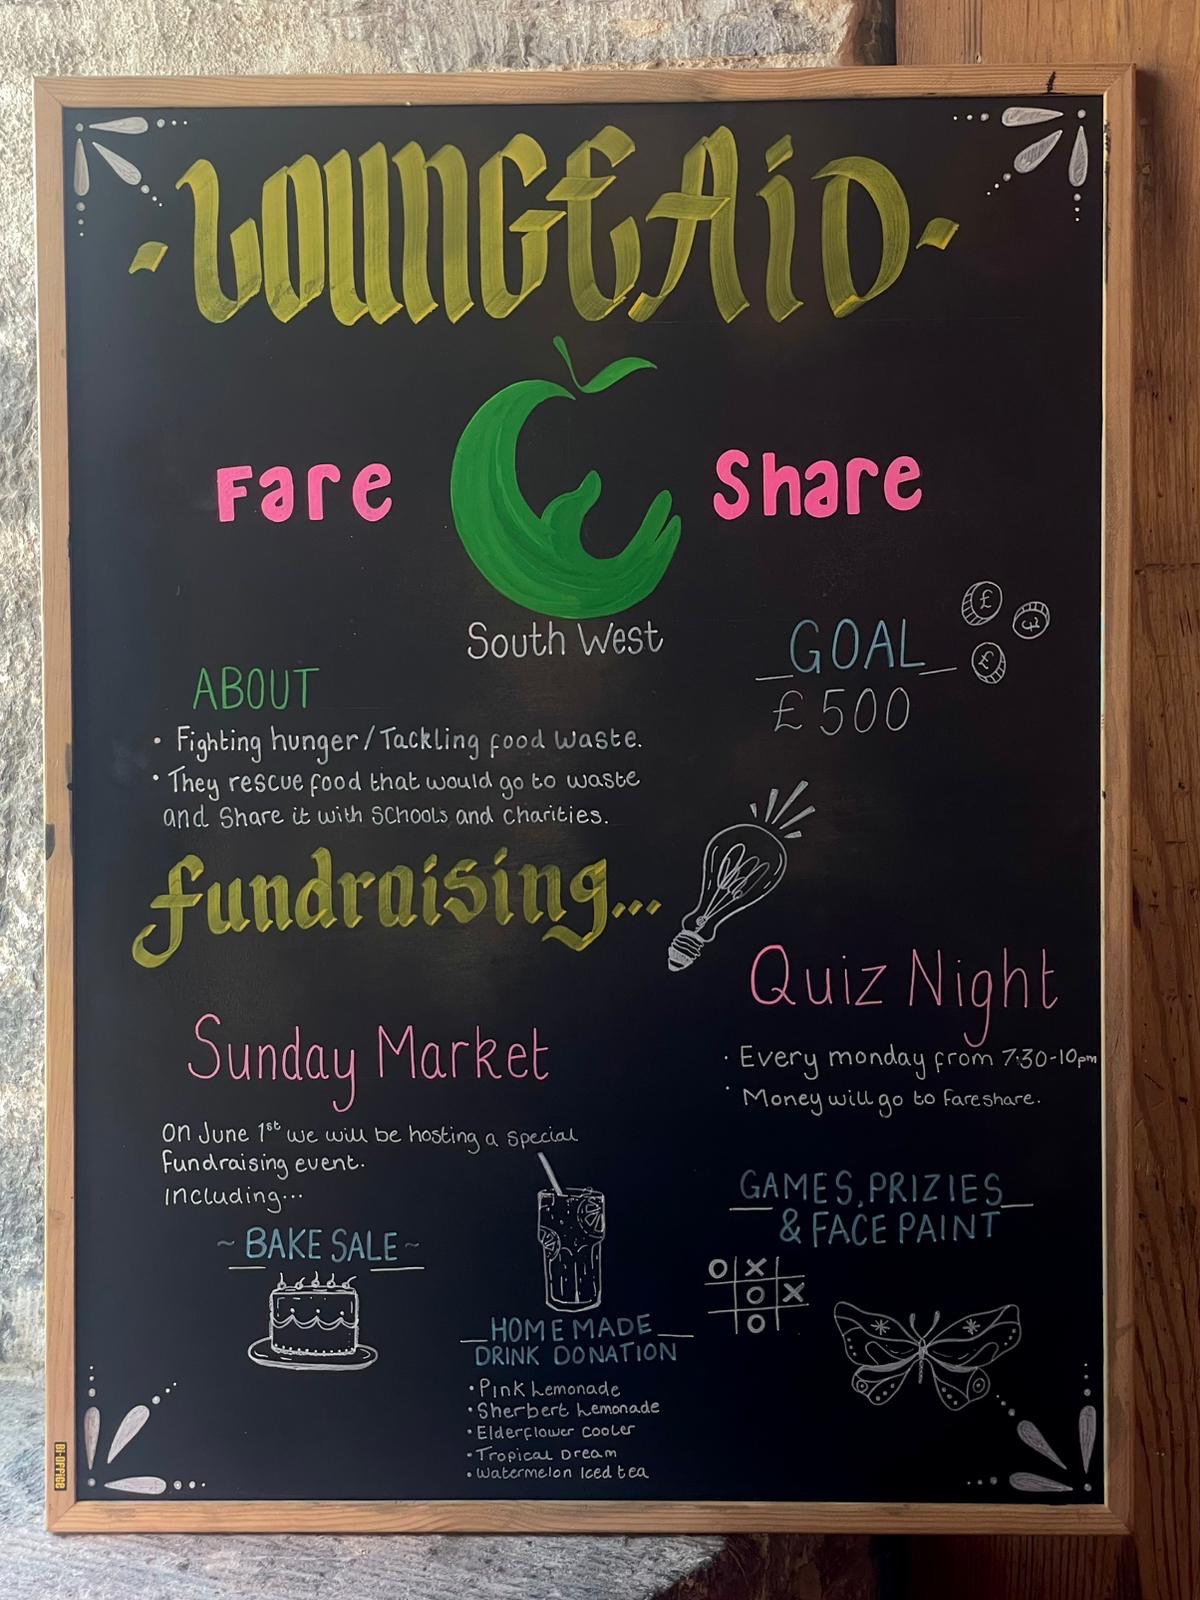 LOUNGEAiD
Fare Share
South West
GOAL
£500
£
£
£
ABOUT
• Fighting hunger/Tackling food waste.
• They rescue food that would go to waste
and Share it with Schools and charities.
fundraising...
Quiz Night
· Every monday from 7:30-10pm
· Money will go to fareshare.
Sunday Market
On June 1st we will be hosting a special
fundraising event.
Including...
~ BAKE SALE ~
HOMEMADE
DRINK DONATION
• Pink Lemonade
• Sherbert Lemonade
• Elderflower cooler
• Tropical Dream
• Watermelon Iced tea
GAMES, PRIZIES
& FACE PAINT
O X
O X
O
Bi-OFFICE